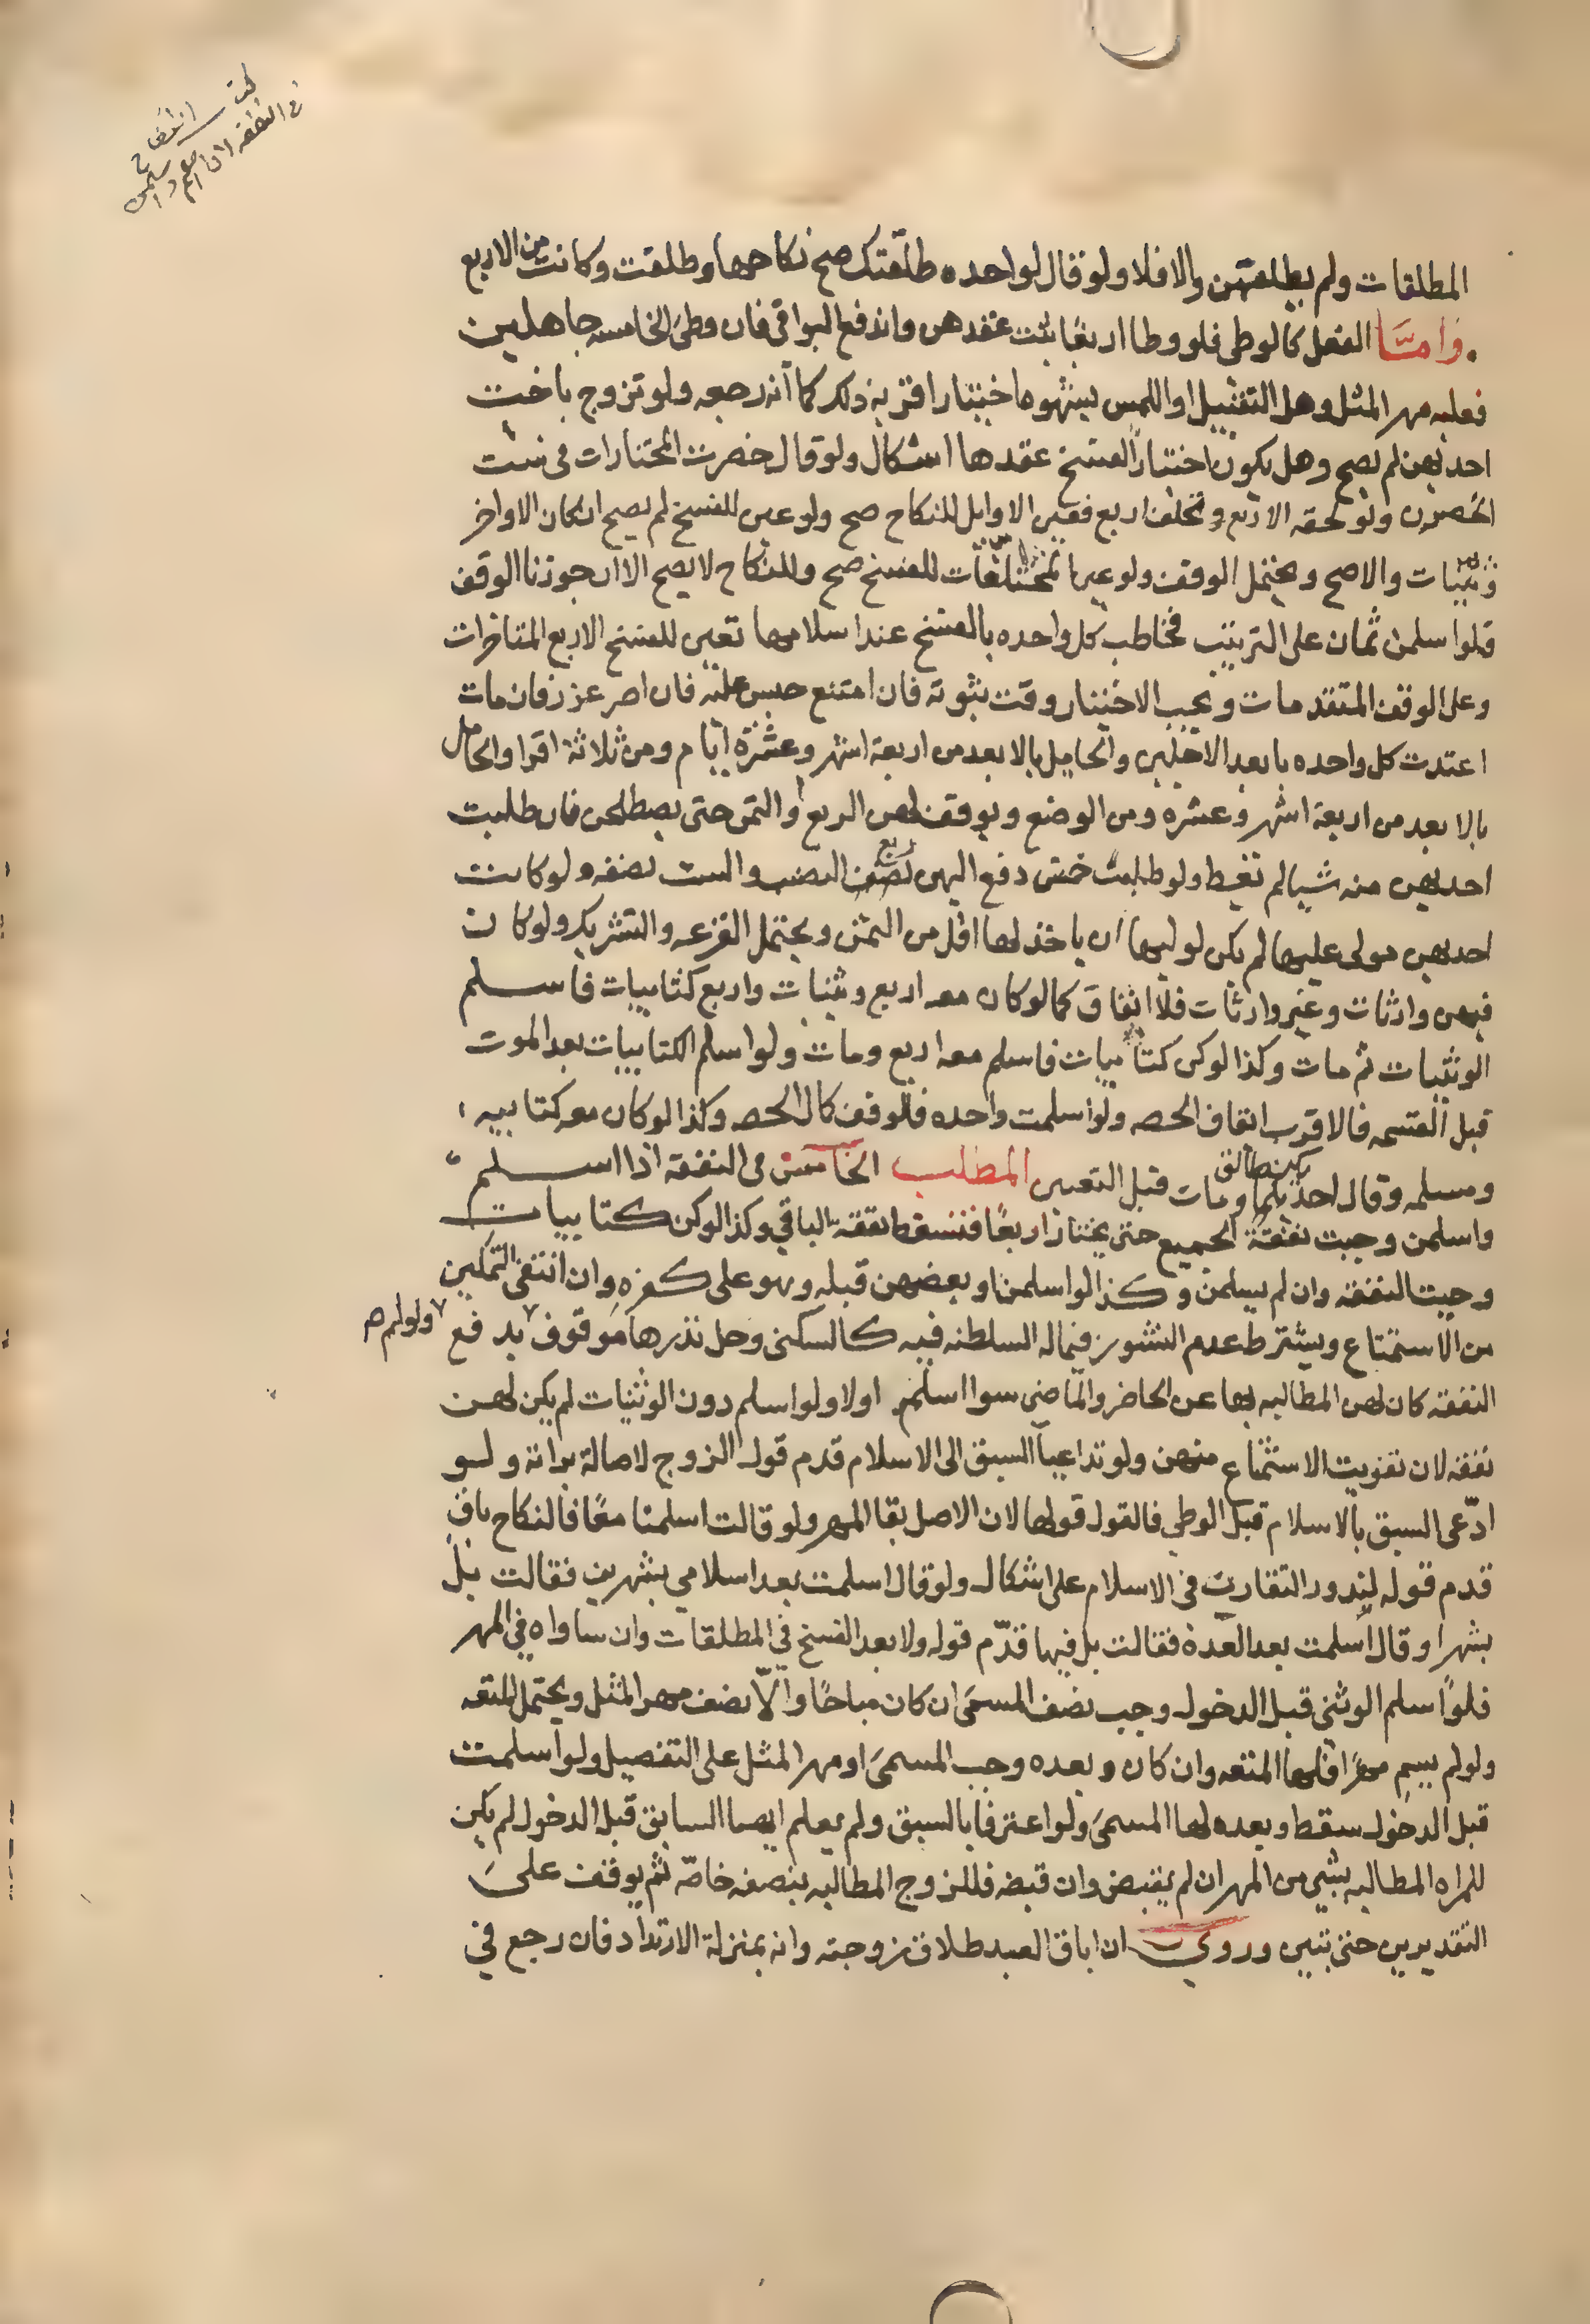 المطلقات ولم يطلقهن والا فلا ولو قال لواحده طلقتك صح نكاحها وطلقت وكانت من الاربع
واما الفعل كالوطى فلو وطا اربعا ثبت عقدهن واندفع البواقى فان وطى الخامسه جاهلين
فعليه مهر المثل وهل التقبيل او اللمس بشهوه اختيار اقربه ذلك كما انه رجعه ولو تزوج باخت
احديهن لم يصح وهل يكون اختيارا لفسخ عقدها اشكال ولو قال حصرت المختارات فى ست
انحصرن ولو لحقه الاربع وتخلف اربع فعين الاوايل للنكاح صح ولو عين للفسخ لم يصح ان كان الاواخر
وثنيات والا صح ويحتمل الوقف ولو عين المتخلفات للفسخ صح وللنكاح لا يصح الا ان جوزنا الوقف
فلو اسلمن ثمان على الترتيب فخاطب كل واحده بالفسخ عند اسلامها تعين للفسخ الاربع المتاخرات
وعلى الوقف المتقدمات ويجب الاختيار وقت ثبوته فان امتنع حبس عليه فان اصر عزر فان مات
اعتدت كل واحده بابعد الاجلين والحايل بالابعد من اربعة اشهر وعشرة ايام ومن ثلاثة اقرا والحامل
بالابعد من اربعة اشهر وعشره ومن الوضع ويوقف لهن الربع او الثمن حتى يصطلحن فان طلبت
احديهن منه شيا لم تعط ولو طلبت خمس دفع اليهن ربع النصيب والست نصفه ولو كانت
احديهن مولى عليها لم يكن لوليها ان ياخذ لها اقل من الثمن ويحتمل القرعه والتشريك ولو كان
فيهن وارثات وغير وارثات فلا ايقاف كما لو كان معه اربع وثنيات واربع كتابيات فاسلم
الوثنيات ثم مات وكذا لو كن كتابيات فاسلم معه اربع ومات ولو اسلم الكتابيات بعد الموت
قبل القسمه فالاقرب ايقاف الحصه ولو اسلمت واحده فالموقف كمال الحصه وكذا لو كان معه كتابيه
ومسلمه وقال احديكما طالق ومات قبل التعيين المطلب الخامس فى النفقه اذا اسلم
واسلمن وجبت نفقة الجميع حتى يختار اربعا فتسقط نفقة الباقى وكذا لو كن كتابيات
وجبت النفقه وان لم يسلمن وكذا لو اسلمن او بعضهن قبله وهو على كفره وان انتفى التمكين
من الاستمتاع ويشترط عدم النشوز فيما له السلطنه فيه كالسكنى وحل نذرها موقوف ولو لم يدفع
النفقه كان لهن المطالبه بها عن الحاضر والماضى سوا اسلم اولا ولو اسلم دون الوثنيات لم يكن لهن
نفقه لان تفويت الاستمتاع منهن ولو تداعيا السبق الى الاسلام قدم قول الزوج لاصالة براته ولو
ادّعى السبق بالاسلام قبل الوطى فالقول قولها لان الاصل بقا المهر ولو قالت اسلمنا معًا فالنكاح باق
قدم قوله لندور التقارن فى الاسلام على اشكال ولو قال اسلمت بعد اسلامي بشهرين فقالت بل
بشهر او قال اسلمت بعد العدة فقالت بل فيها قدّم قوله ولا بعد الفسخ في المطلقات وان ساواه فى المهر
فلو اسلم الوثنى قبل الدخول وجب نصف المسمى ان كان مباحًا والّا نصف مهر المثل ويحتمل المتعه
ولو لم يسم مهرًا فلها المتعه وان كان وبعده وجب المسمى او مهر المثل على التفصيل ولو اسلمت
قبل الدخول سقط وبعده لها المسمى ولو اعترفا بالسبق ولم يعلم ايهما السابق قبل الدخول لم يكن
للمراه المطالبه بشى من المهر ان لم يقبض وان قبضه فللزوج المطالبه بنصفه خاصّه ثم يوقف على
التقديرين حتى يتبين وروى ان اباق العبد طلاق زوجته وانه بمنزلة الارتداد فان رجع في